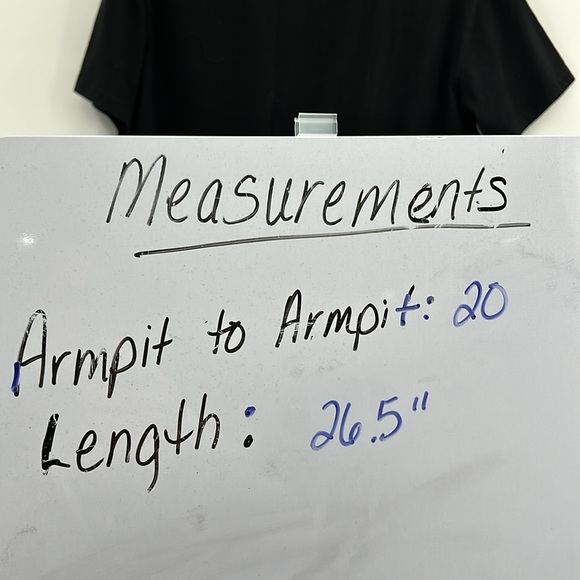 Measurements
Armpit to Armpit: 20
Length: 26.5"